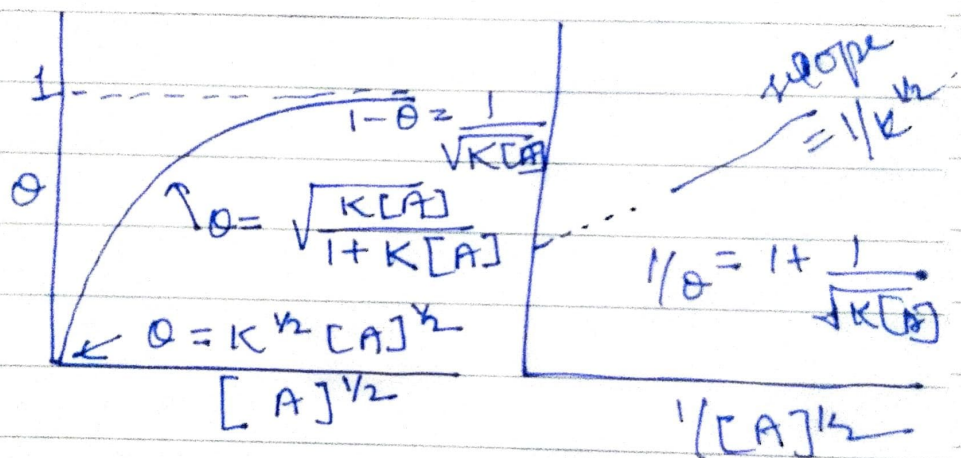 1
θ
1-θ = 1/√K[A]
θ = √K[A]/1+K[A]
θ = K^1/2 [A]^1/2
[A]^1/2
slope
= 1/K^1/2
1/θ = 1 + 1/√K[A]
1/[A]^1/2